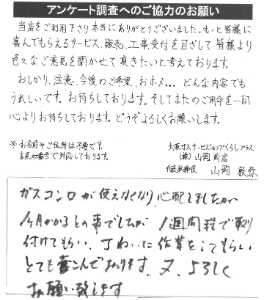 アンケート調査へのご協力のお願い
当店をご利用下さり本当にありがとうございました。もっと皆様に
喜んでもらえるサービス、販売、工事受付を目ざして皆様より
色々なご意見を聞かせて頂きたいと考えております。
おしかり、注意、今後のご希望、おホメ… どんな内容でも
うれしいです。お待ちしております。そしてまたのご用命を一同
心よりお待ちしております。どうぞよろしくお願いします。
※お名前やご住所は不要です。
(株)山岡商店
山岡
ガスコンロが使えなくなり心配しましたが
1ヶ月かかるとの事でしたが 1週間程で取り
付けてもらい、ていねいに作業をしてもらい
とても喜んでおります。又、よろしく
お願い致します